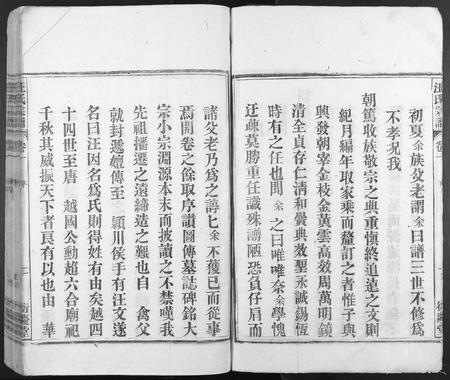 初夏余族父老謂余曰譜三世不修為
不孝况我
朝篤收族敬宗之典重慎終追遠之文則
紀月編年取家乘而釐訂之者惟子與
興發朝宰金枝金黃雲高效周萬明鏡
清全貞存仁清和釁典效聖永誠錫恆
時有之任也間余之曰唯唯奈余學愧
迂疎莫勝重任識殊謭陋恐負仔肩而
諸父老乃為之諄匕余不獲已而從事
焉開卷之餘取序讚圖傳墓誌碑銘大
宗小宗淵源本末而披讀之不禁嘆我
先祖播遷之遠締造之艱也自　禽父
就封遞嬗傳至　潁川侯手有汪文遂
名曰汪因名為氏則得姓有由矣越四
十四世至唐　越國公勳超六合廟祀
千秋其威振天下者良有以也由　華